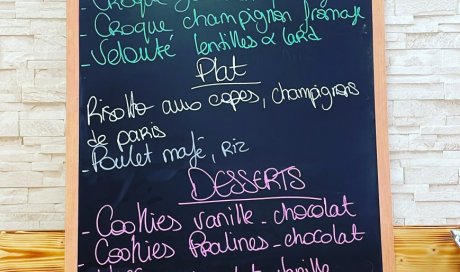 Croque
- Croque champignon fromage
- Velouté lentilles & lard
Plat
Risotto aux cèpes, champignons
de paris
- Poulet mafé, Riz
DESSERTS
- Cookies vanille - chocolat
- Cookies Pralines - chocolat
vanille